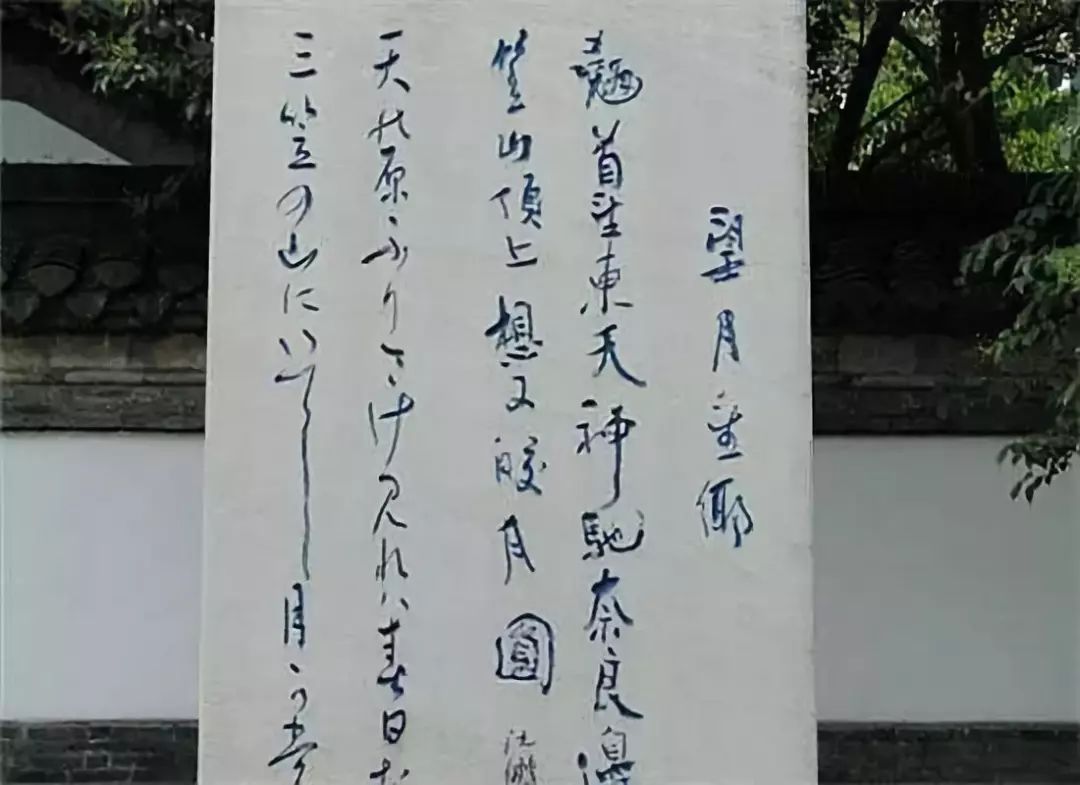 望月望鄉
翹首望東天神馳奈良邊
笠山頂上想又皎月圓
天の原ふりさけ見れハ春日な
三笠の山にいてし月